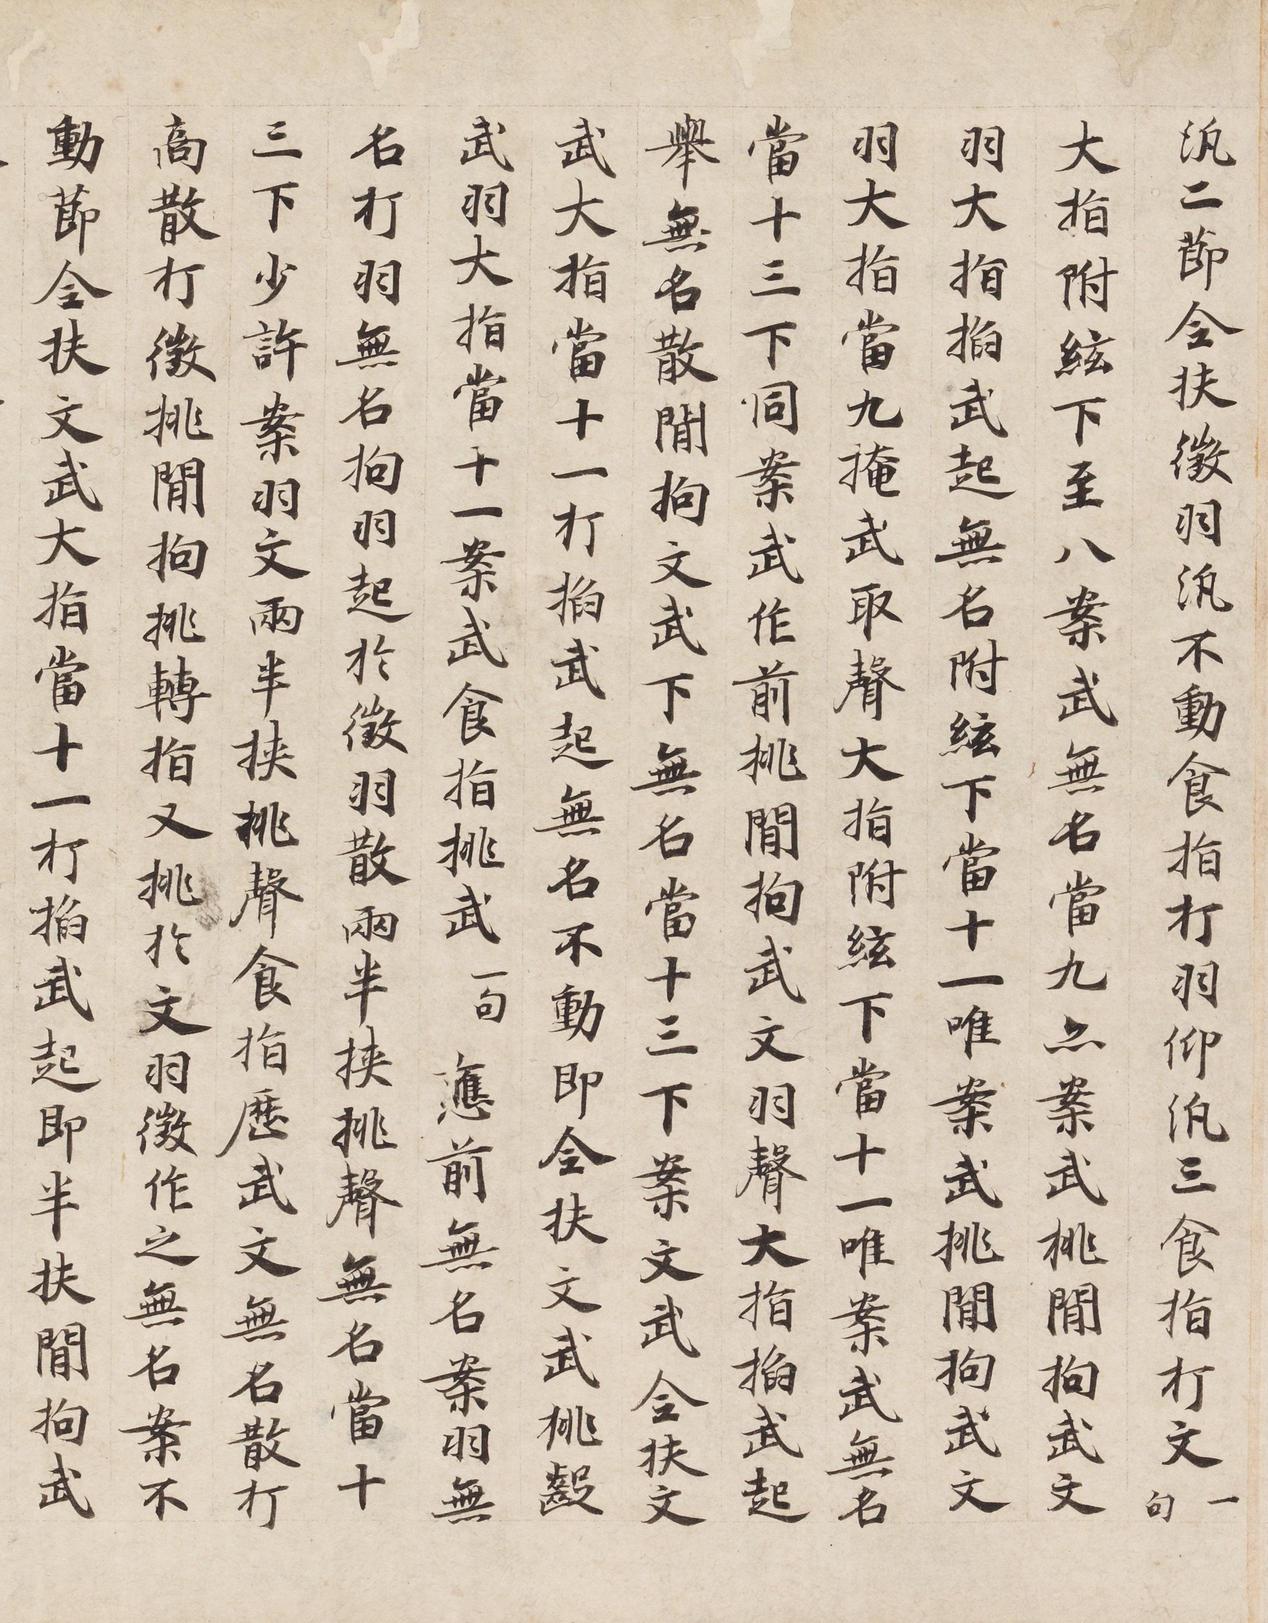 汎二節全扶徵羽汎不動食指打羽仰汎三食指打文一句
大指附絃下至八案武無名當九亦案武挑間拘武文
羽大指掐武起無名附絃下當十一唯案武挑間拘武文
羽大指當九掩武取聲大指附絃下當十一唯案武無名
當十三下同案武作前挑間拘武文羽聲大指掐武起
舉無名散間拘文武下無名當十三下案文武全扶文
武大指當十一打掐武起無名不動即全扶文武挑
武羽大指當十一案武食指挑武一句應前無名案羽無
名打羽無名拘羽起於徵羽散兩半挟挑聲無名當十
三下少許案羽文兩半挟挑聲食指歷武文無名散打
高散打徵挑間拘挑轉指又挑於文羽徵作之無名案不
動節全扶文武大指當十一打掐武起即半扶間拘武